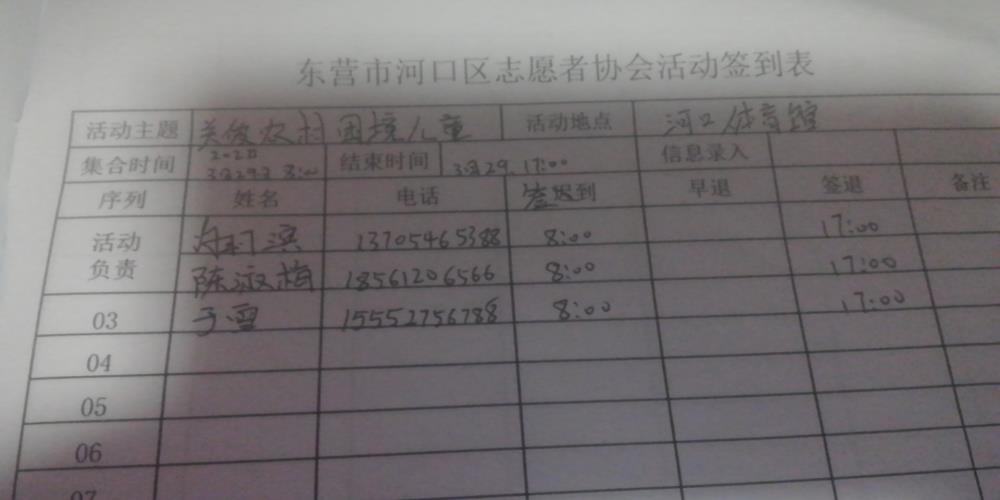 东营市河口区志愿者协会活动签到表
活动主题 关俊农村困境儿童 活动地点 河口体育馆
集合时间 3月29日 8:00 结束时间 3月29. 17:00 信息录入
序列 姓名 电话 签到 早退 签退 备注
活动负责 滨 13705465388 8:00 17:00
陈淑梅 18561206566 8:00 17:00
03 于雪 15552756788 8:00 17:00
04
05
06
07